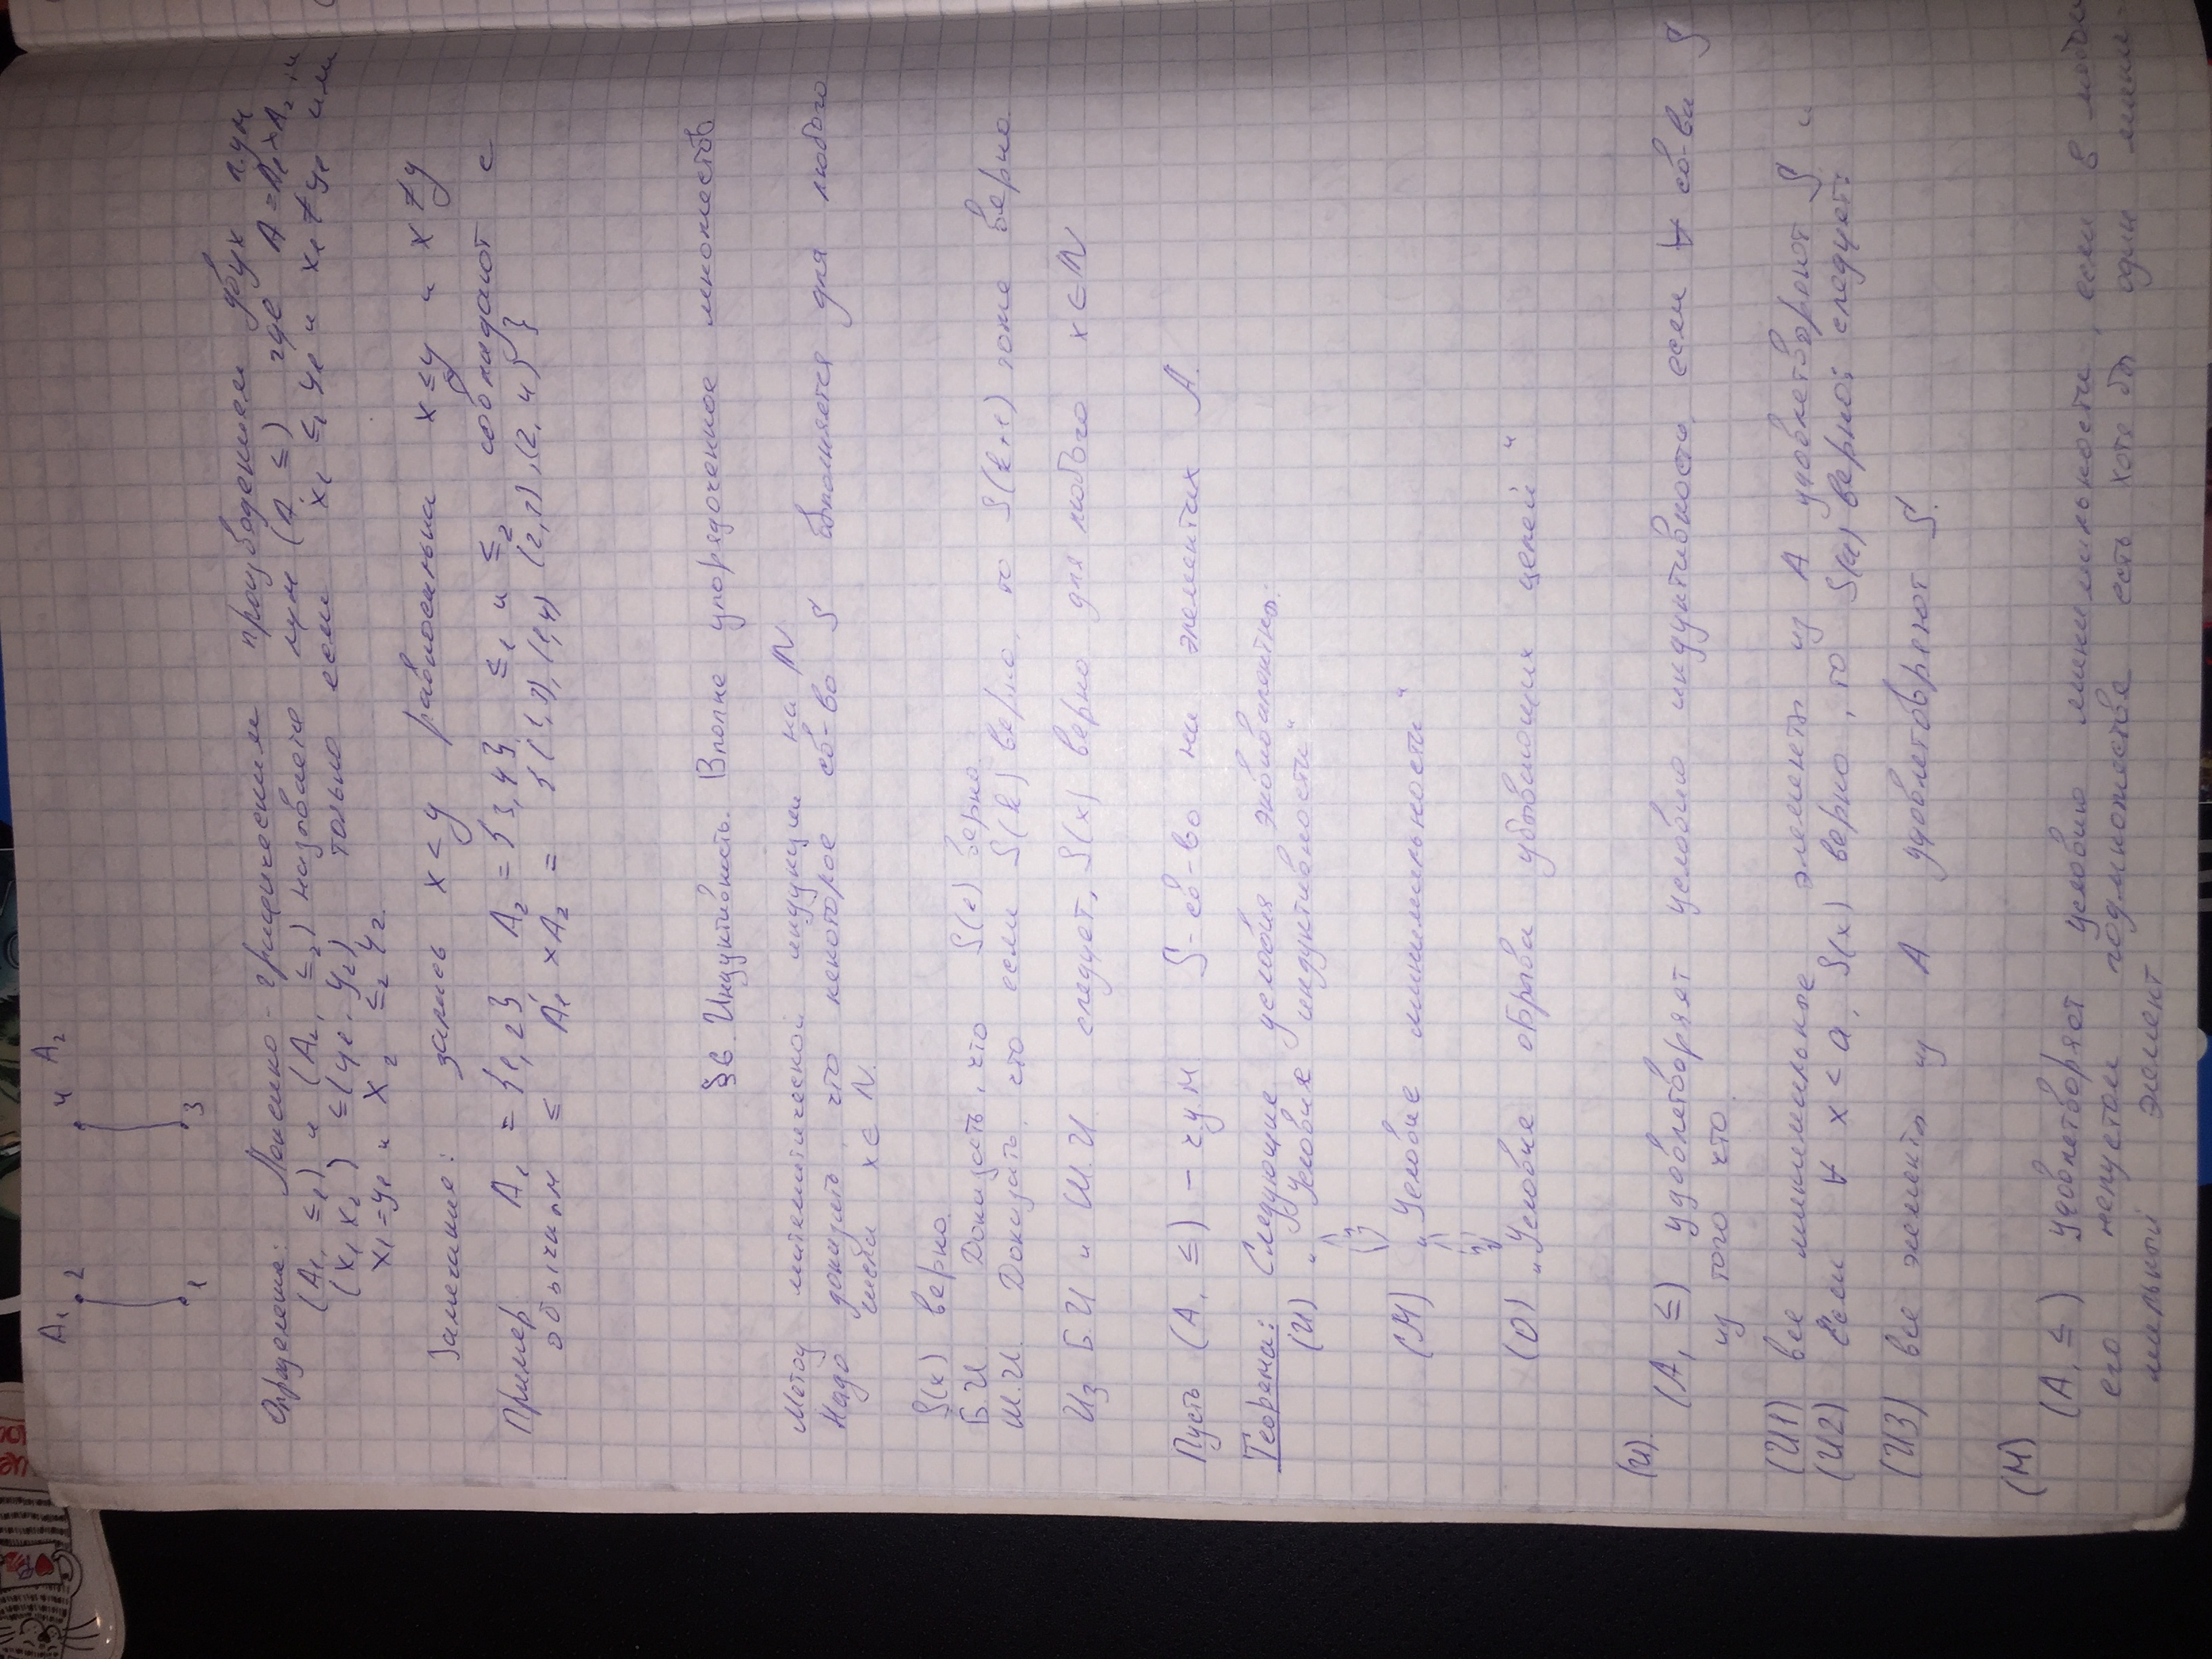 A₁ 2 4 A₂
1 3
Определение: Лексико-графическим произведением двух л.у.м
(A₁, ≤₁) и (A₂, ≤₂) называется лум (A, ≤) где A = A₁×A₂ и
(x₁ x₂) ≤ (y₁, y₂), только если x₁ ≤₁ y₁ и x₁ ≠ y₁ или
x₁ = y₁ и x₂ ≤₂ y₂.
Замечание: запись x < y равносильна x ≤ y и x ≠ y
Пример A₁ = {1, 2}, A₂ = {3, 4}, ≤₁ и ≤₂ совпадают с
обычным ≤ A₁ × A₂ = {(1,3), (1,4) (2,3), (2,4)}
§6. Индуктивность. Вполне упорядоченное множества
Метод математической индукции на ℕ
Надо доказать, что некоторое св-во S выполняется для любого
числа x ∈ N.
S(x) верно.
Б.И Доказать, что S(1) верно.
Ш.И. Доказать, что если S(k) верно, то S(k+1) тоже верно.
Из Б.И и Ш.И. следует, S(x) верно для любого x ∈ ℕ
Пусть (A, ≤) – ч.у.м S - св-во на элементах A.
Теорема: Следующие условия эквивалентны:
(И) „Условие индуктивности“
(М) „Условие минимальности“
(О) „Условие обрыва убывающих цепей“
(И).
(A, ≤) удовлетворяет условию индуктивности, если ∀ св-ва S
из того что
(И1) все минимальные элементы из A удовлетворяют S и
(И2) Если ∀ x < a, S(x) верно, то S(a) верно; следует:
(И3) все элементы из A удовлетворяют S.
(М)
(A, ≤) удовлетворяет условию минимальности, если в любом
его непустом подмножестве есть хотя бы один мини-
мальный элемент